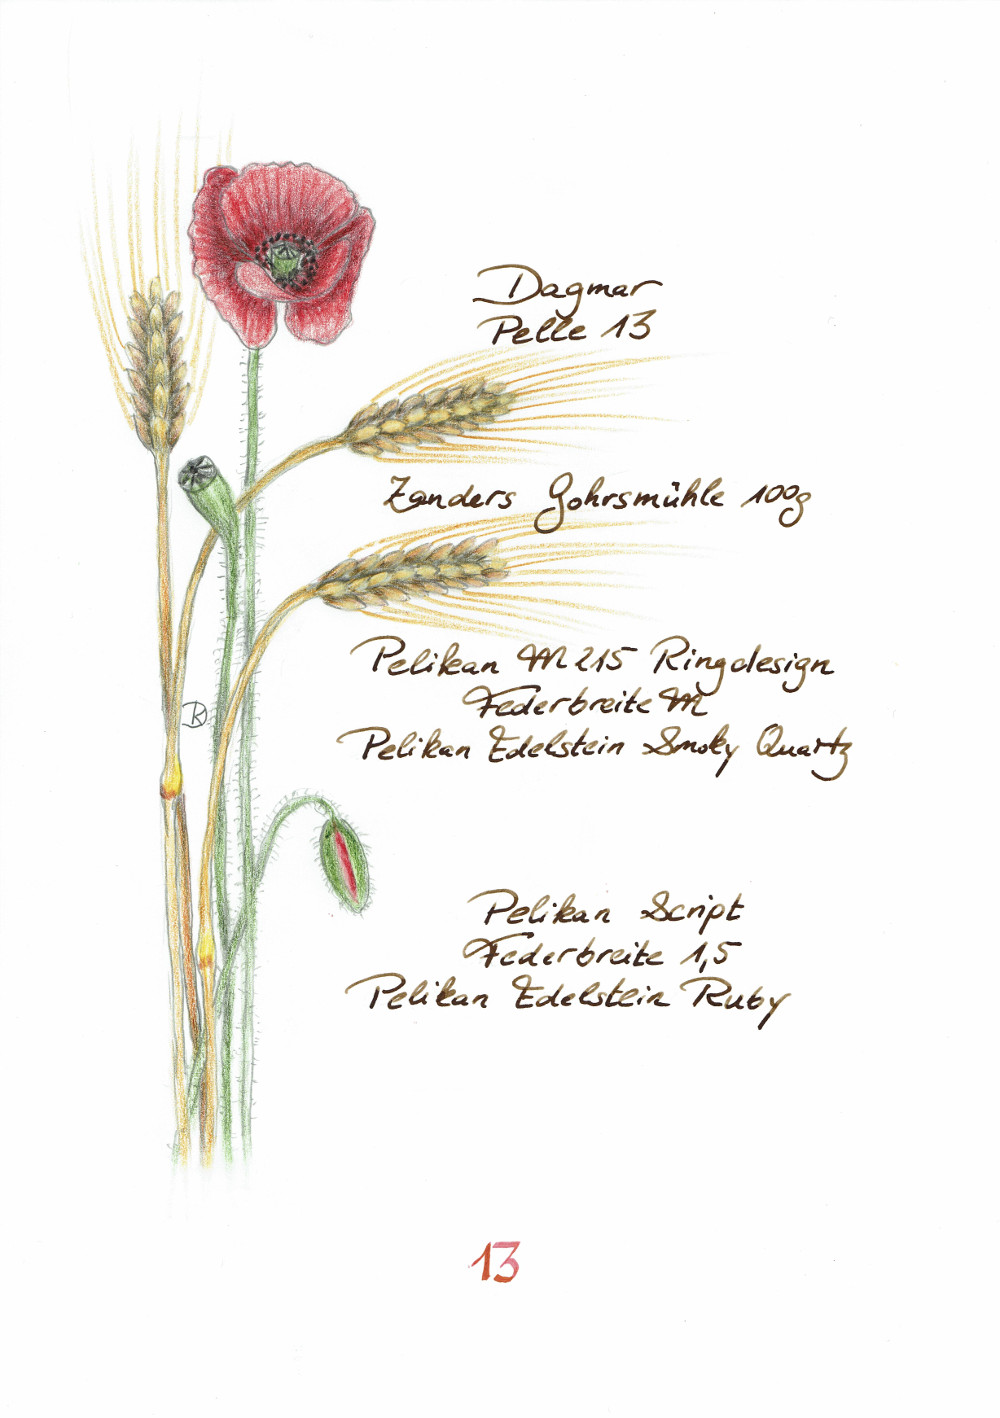 Dagmar
Pelle 13
Zanders Gohrsmühle 100g
Pelikan M215 Ringdesign
Federbreite M
Pelikan Edelstein Smoky Quartz
Pelikan Script
Federbreite 1,5
Pelikan Edelstein Ruby
13